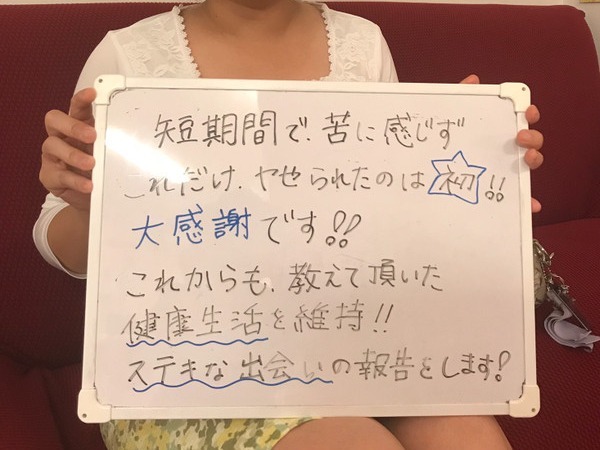 短期間で、苦に感じず
これだけ、ヤせられたのは初!!
大感謝です!!
これからも、教えて頂いた
健康生活を維持!!
ステキな出会いの報告をします!